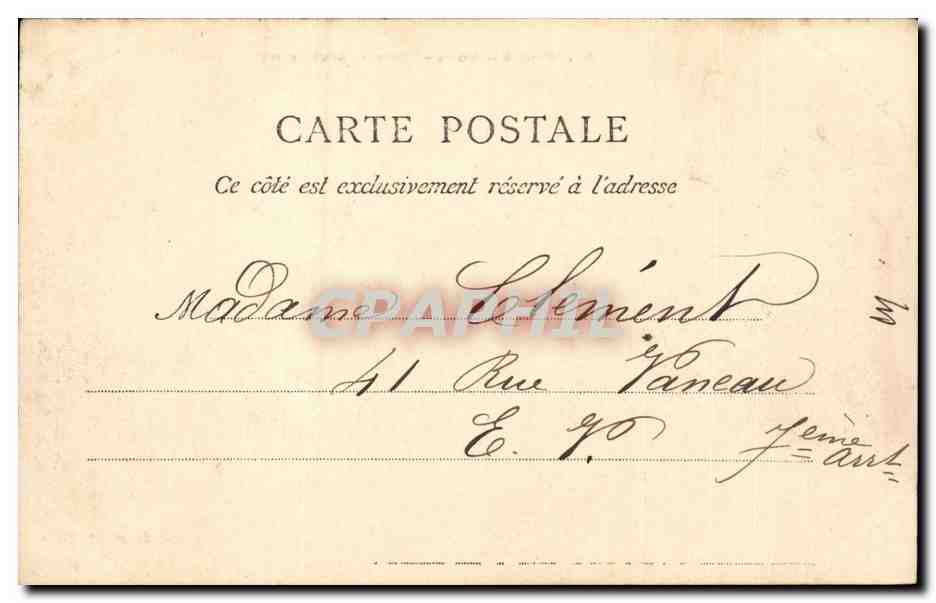 CARTE POSTALE
Ce côté est exclusivement réservé à l'adresse
Madame
CPAPHIL
41 Rue Vaneau
E. V. 7ème arrt